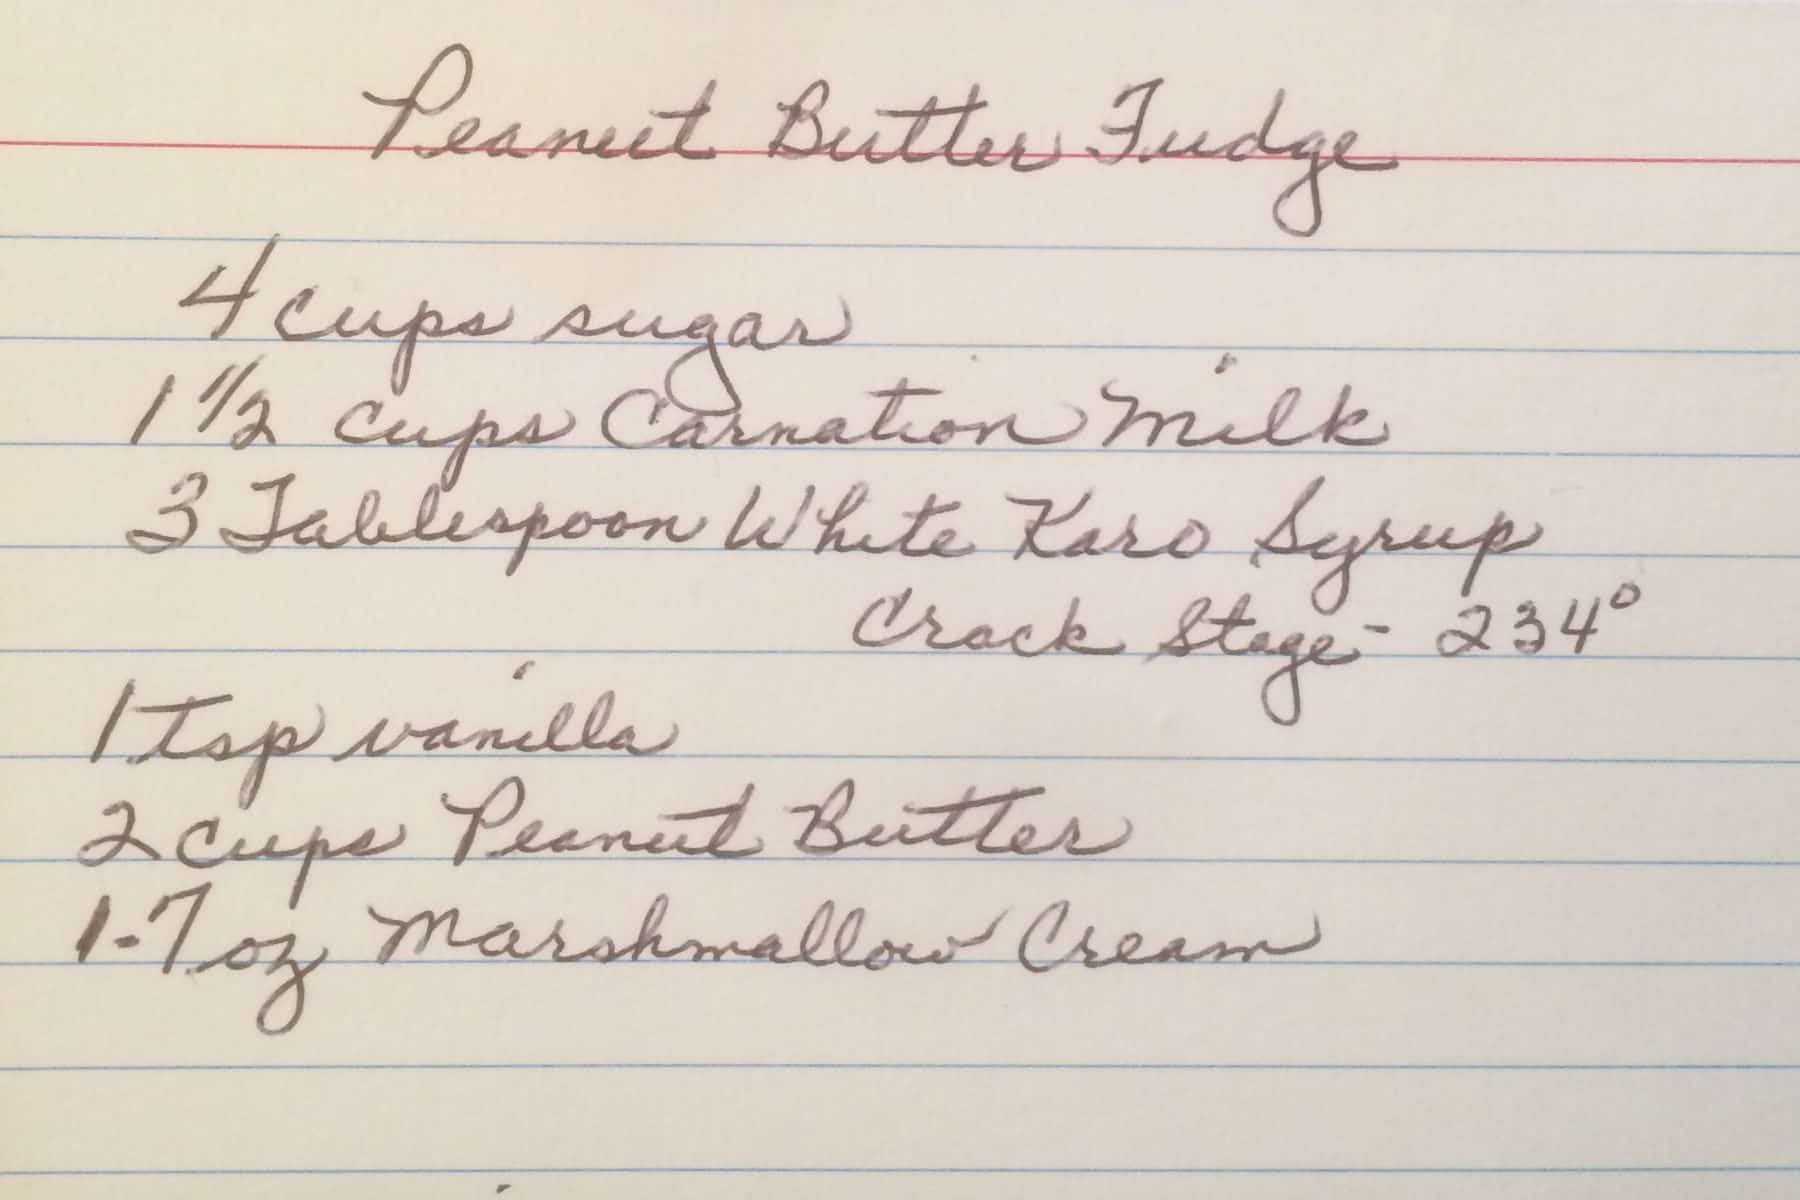 Peanut Butter Fudge
4 cups sugar
1 1/2 cups Carnation Milk
3 Tablespoon White Karo Syrup
Crack Stage - 234°
1 tsp vanilla
2 cups Peanut Butter
1-7 oz Marshmallow Cream